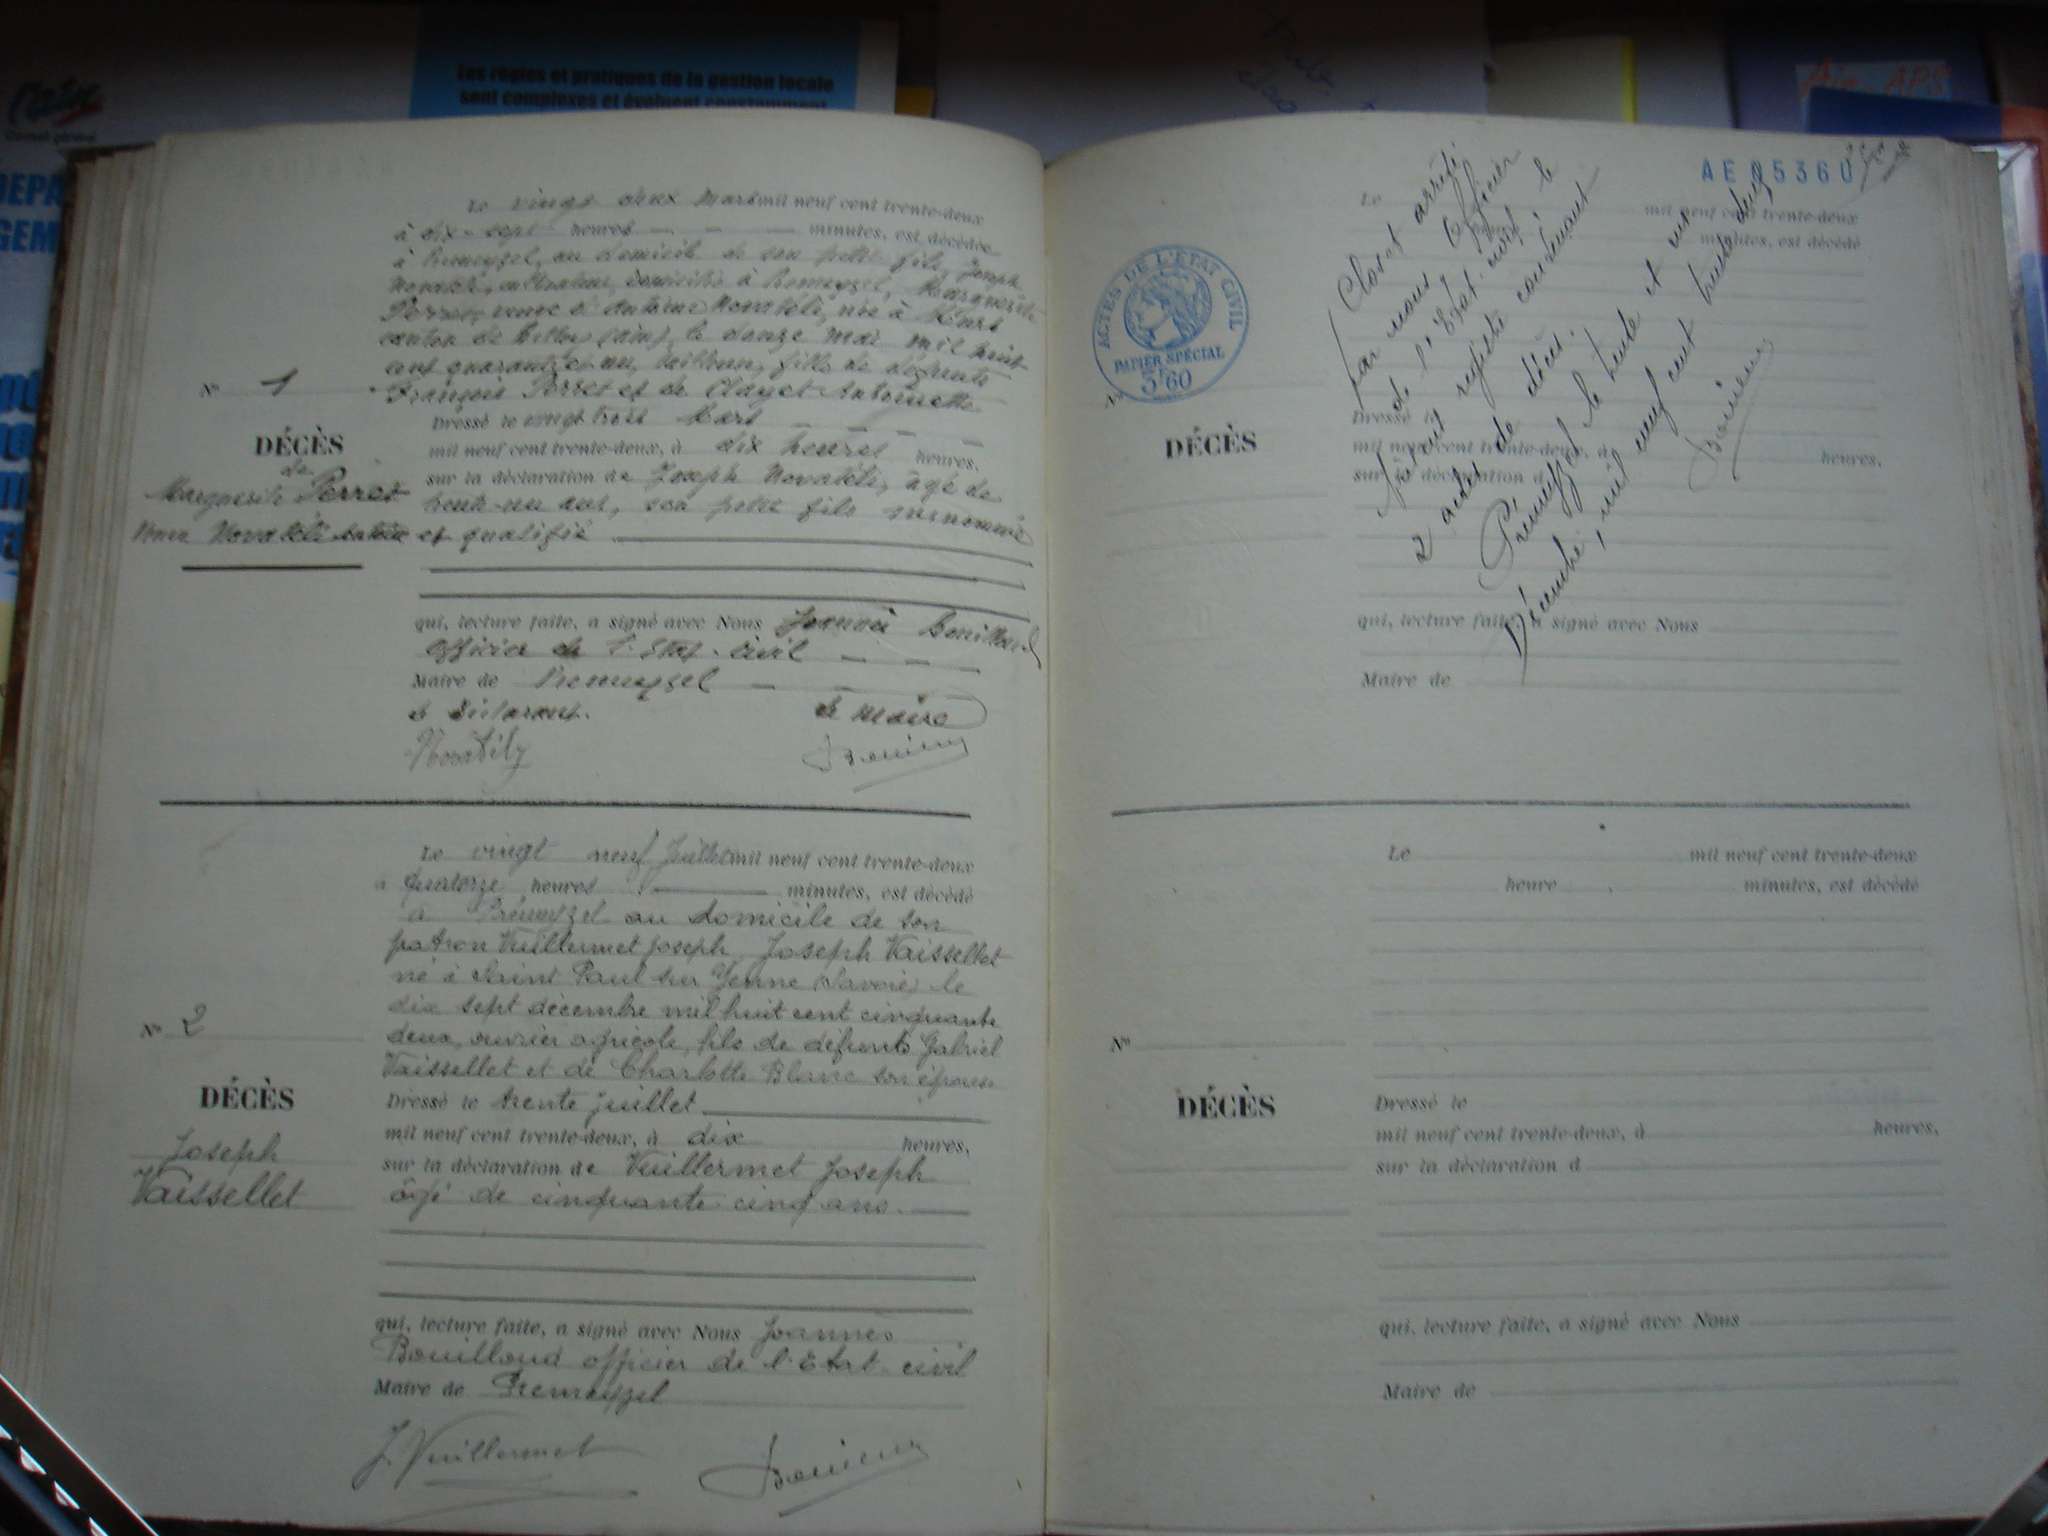 l'ain
Conseil général
Les règles et pratiques de la gestion locale
sont complexes et évoluent constamment
Ain. APS
Le vingt deux Mars mil neuf cent trente-deux
à dix-sept heures — — — minutes, est décédée
à Premeyzel, au domicile de son petit fils, Joseph
Novatéli, cultivateur, domicilié à Premeyzel, Marguerite
Perret, veuve d'Antoine Novatéli, née à
canton de Belley (Ain), le douze mai mil huit
cent quarante et un, fille de défunts
François Perret et de Clayet Antoinette
N° 1
DÉCÈS
de
Marguerite Perret
Veuve Novatéli Antoine
Dressé le vingt trois Mars — — —
mil neuf cent trente-deux, à dix heures heures,
sur la déclaration de Joseph Novatéli, âgé de
trente-un ans, son petit fils surnommé
et qualifié
qui, lecture faite, a signé avec Nous Joannès Bouilloud
Officier de l'Etat-civil — — —
Maire de Premeyzel — —
le déclarant. Le Maire
Novatily
Le vingt neuf Juillet mil neuf cent trente-deux
à quatorze heures — minutes, est décédé
à Prémeyzel au domicile de son
patron Vuillermet Joseph, Joseph Vaissellet
né à Saint Paul sur Yenne (Savoie) le
dix sept décembre mil huit cent cinquante
deux, ouvrier agricole, fils de défunts Gabriel
Vaissellet et de Charlotte Blanc son épouse
N° 2
DÉCÈS
Joseph
Vaissellet
Dressé le trente juillet
mil neuf cent trente-deux, à dix heures,
sur la déclaration de Vuillermet Joseph
âgé de cinquante cinq ans.
qui, lecture faite, a signé avec Nous Joannes
Bouilloud officier de l'Etat-civil
Maire de Premeyzel
J. Vuillermet
AE 05360
ACTES DE L'ÉTAT CIVIL
PAPIER SPÉCIAL
3F60
Le mil neuf cent trente-deux
minutes, est décédé
Closet arrêté
par nous Officier
de l'Etat-civil le
registre contenant
2 actes de décès.
Prémeyzel le trente et un
Décembre, mil neuf cent trente deux
DÉCÈS
Dressé le
mil neuf cent trente-deux, à heures,
sur la déclaration d
qui, lecture faite, a signé avec Nous
Maire de
Le mil neuf cent trente-deux
heure minutes, est décédé
N°
DÉCÈS
Dressé le
mil neuf cent trente-deux, à heures,
sur la déclaration d
qui, lecture faite, a signé avec Nous
Maire de